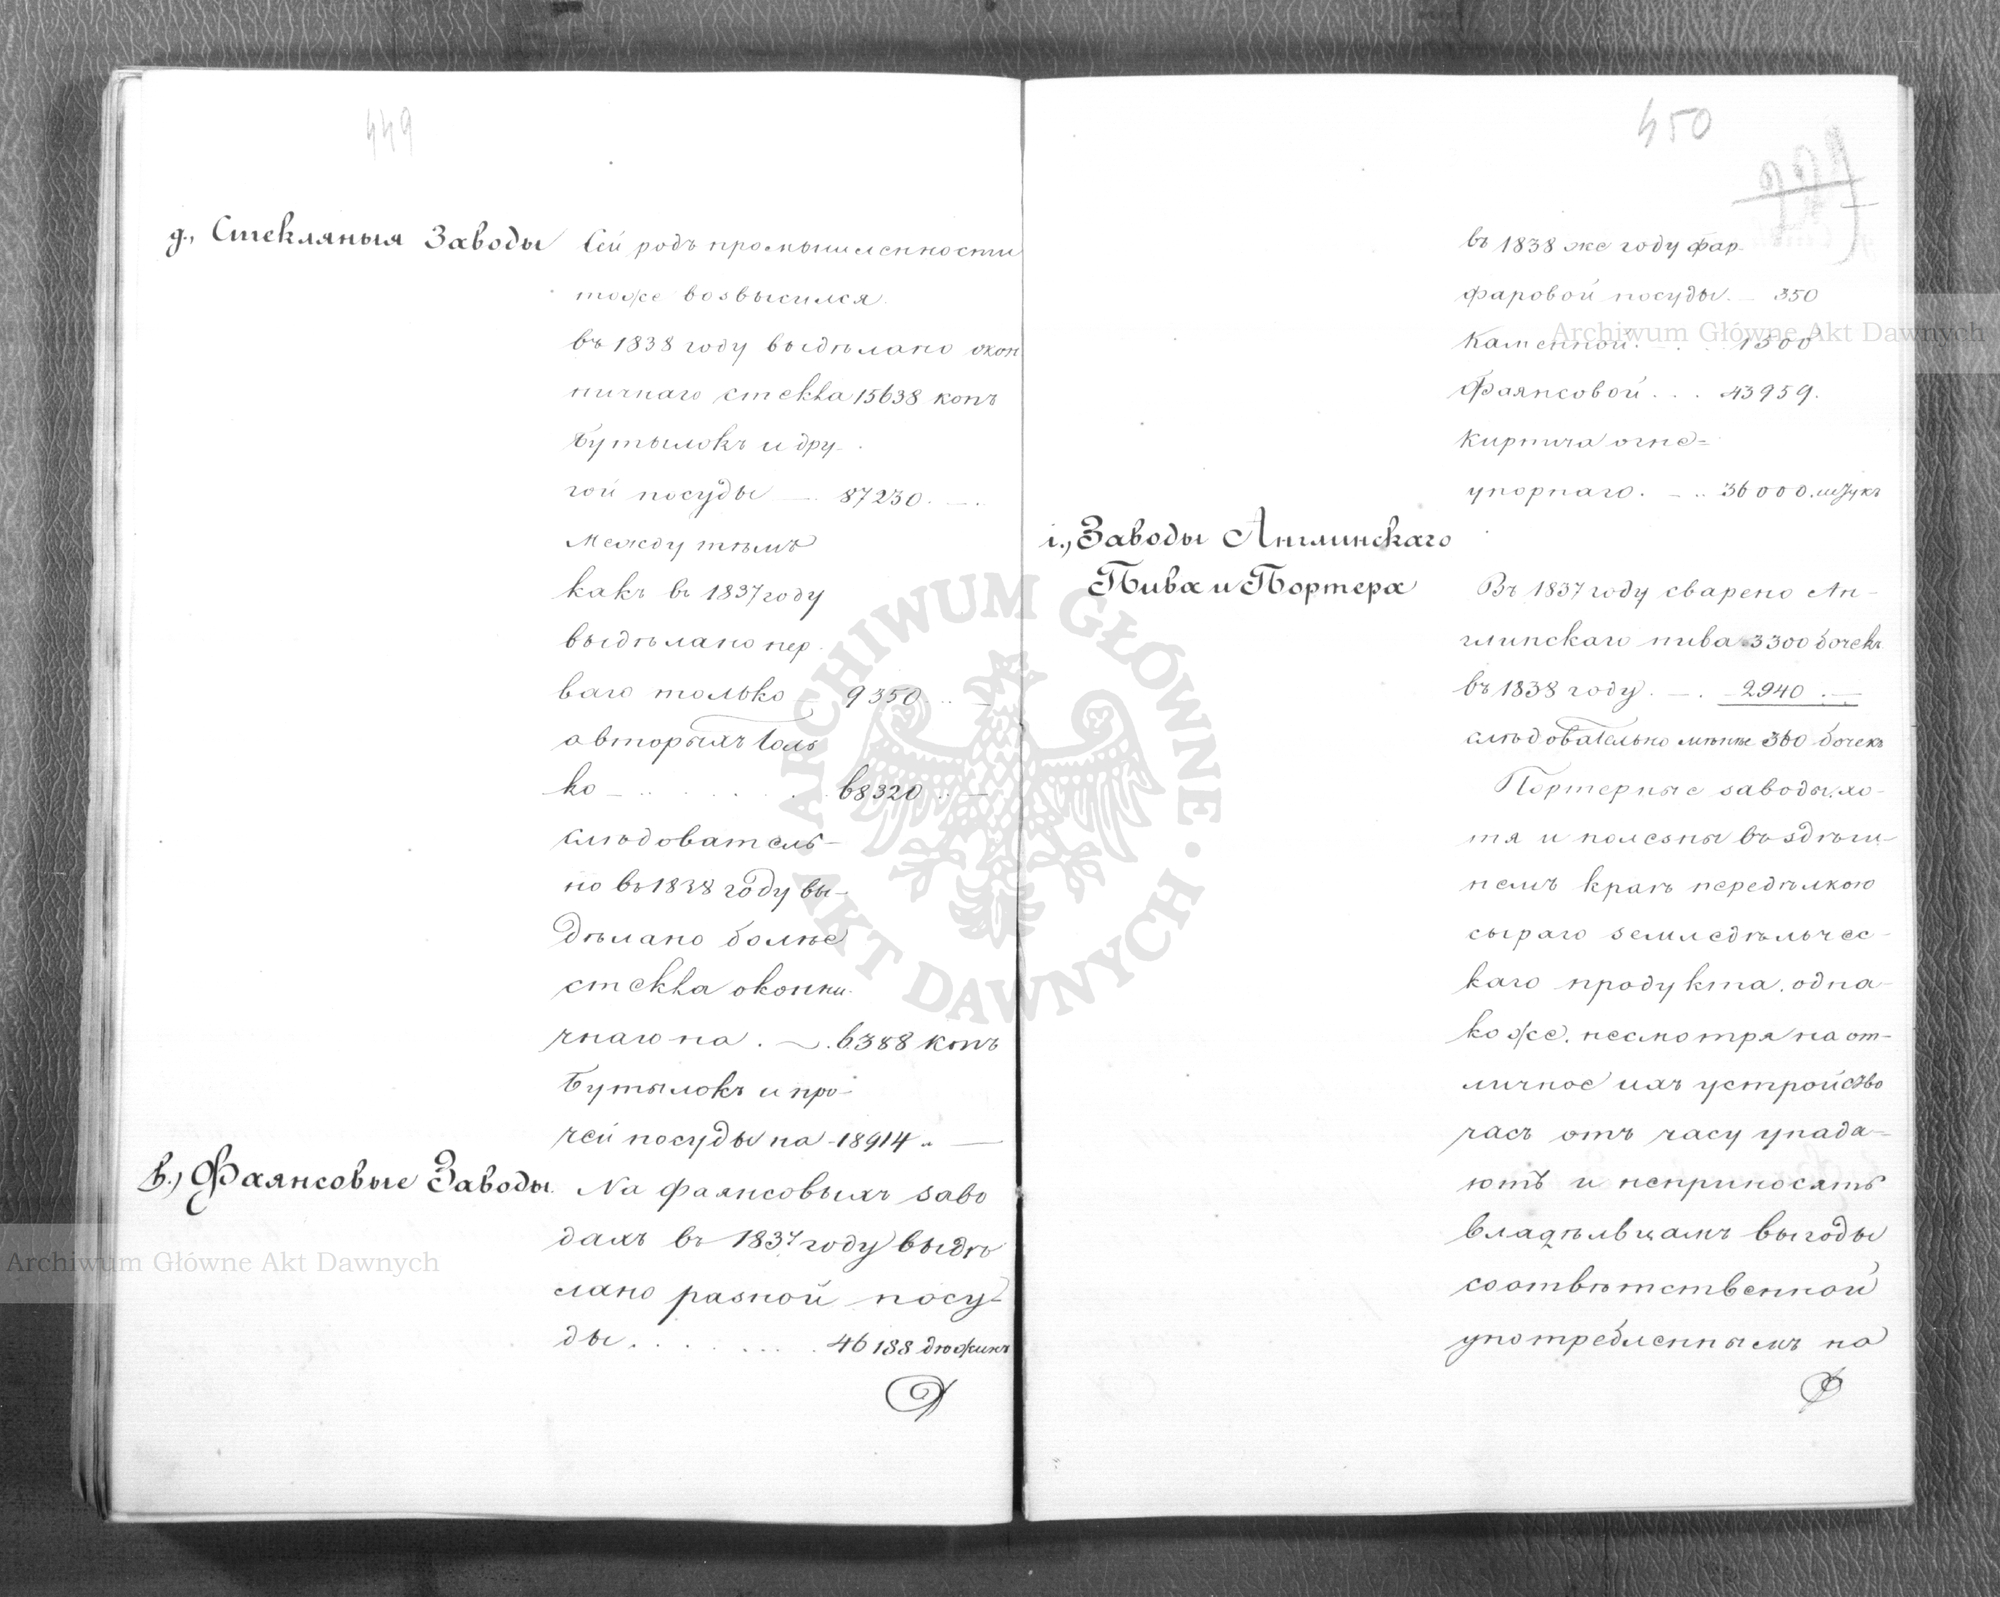 449
д., Стекляныя Заводы
Сей родъ промышленности
тоже возвысился.
въ 1838 году выдѣлано окон
ничнаго стекла 15638 копъ
Бутылокъ и дру-
гой посуды — 87230. —.
Между тѣмъ
какъ въ 1837 году
выдѣлано пер-
ваго только 9350 .. —
а вторыхъ толь
ко — .. . . . . 68320 .. —
слѣдователь-
но въ 1838 году вы-
дѣлано болѣе
стекла оконни-
чнаго на . — . 6388 копъ
Бутылокъ и про-
чей посуды на - 18914 .. —
Фаянсовые Заводы.
На фаянсовыхъ заво
дахъ въ 1837 году выдѣ
лано разной посу-
ды . . . . . . . 46188 дюжинъ
450
въ 1838 же году фар-
фаровой посуды. — 350
Каменной. — . . 1500
Фаянсовой . . . 43959.
Кирпича огне=
упорнаго. — .. 36000. штукъ
і., Заводы Англинскаго
Пива и Портера
Въ 1837 году сварено Ан-
глинскаго пива 3300 бочекъ
въ 1838 году. — . 2940 . —
слѣдовательно менѣе 360 бочекъ
Портерные заводы, хо-
тя и полезны въ здѣш-
немъ краѣ передѣлкою
сыраго земледѣльчес-
каго продукта, одна-
коже, несмотря на от-
личное ихъ устройство
часъ отъ часу упада-
ютъ и неприносятъ
владѣльцамъ выгоды
соотвѣтственной
употребленнымъ на
Archiwum Główne Akt Dawnych
Archiwum Główne Akt Dawnych
ARCHIWUM GŁÓWNE · AKT DAWNYCH ·